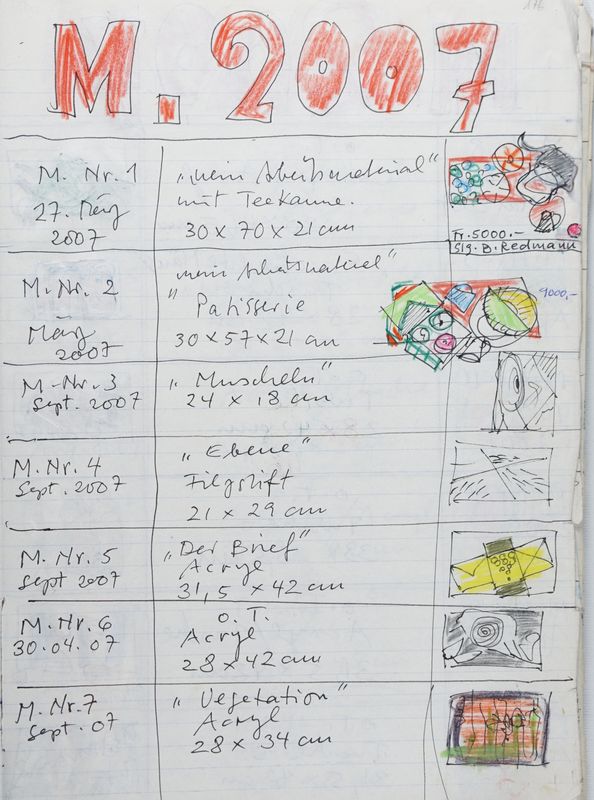 176
M. 2007
M. Nr. 1
27. März
2007
„mein Arbeitsmaterial"
mit Teekanne.
30 x 70 x 21 cm
Fr. 5000.-
Slg. B. Redmann
M. Nr. 2
März
2007
mein Arbeitsmaterial"
" Patisserie
30 x 57 x 21 cm
9000.-
M. Nr. 3
Sept. 2007
„Muscheln"
24 x 18 cm
M. Nr. 4
Sept. 2007
„Ebene"
Filzstift
21 x 29 cm
M. Nr. 5
Sept 2007
„Der Brief"
Acryl
31,5 x 42 cm
M. Nr. 6
30.04.07
O.T.
Acryl
28 x 42 cm
M. Nr. 7
Sept. 07
"Vegetation"
Acryl
28 x 34 cm